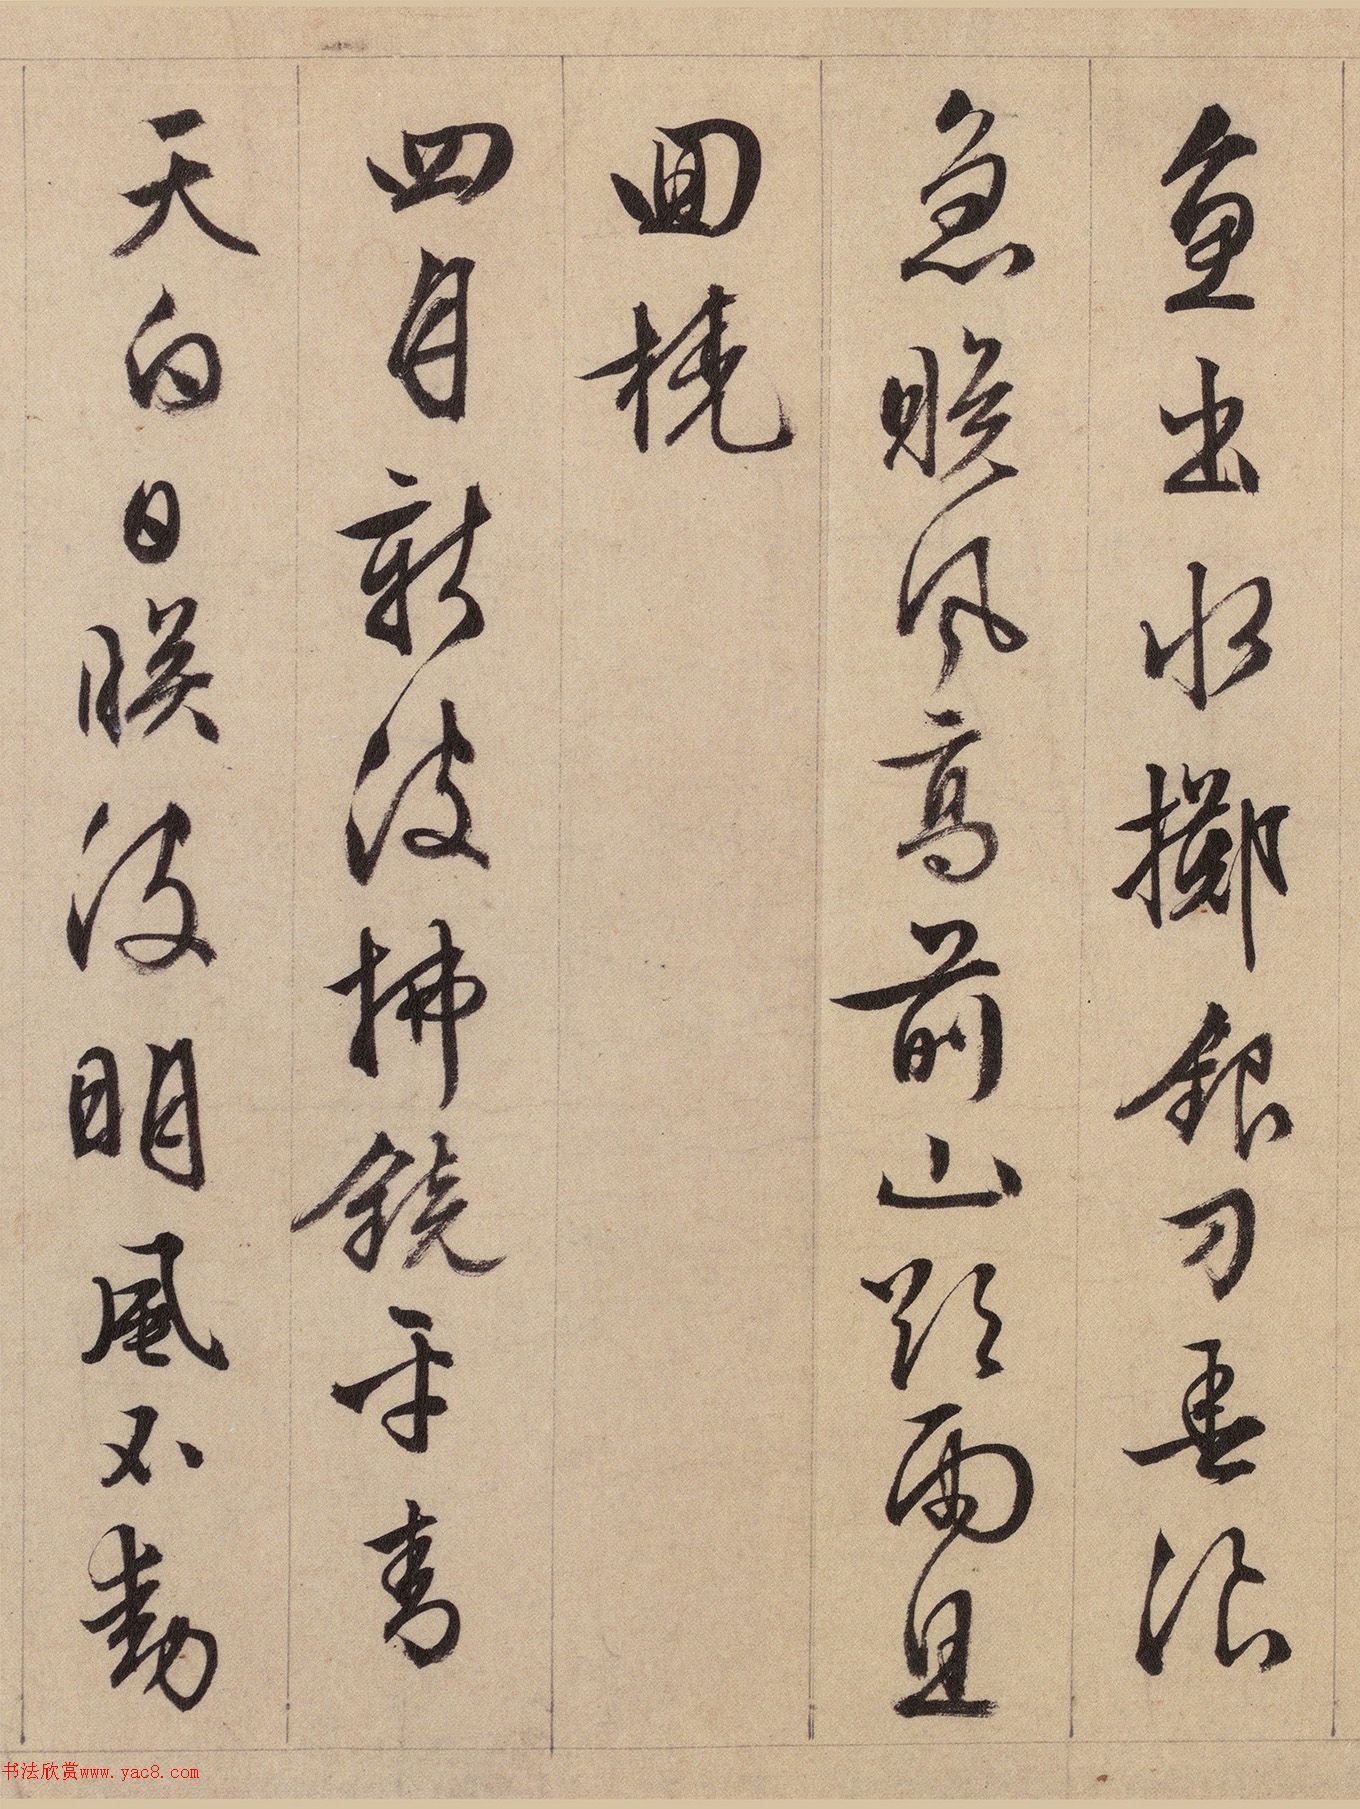 魚出水擲銀刀春浪
急晚風高前山頭雨且
回橈
四月新波拂鏡平青
天白日映波明風不動
书法欣赏www.yac8.com